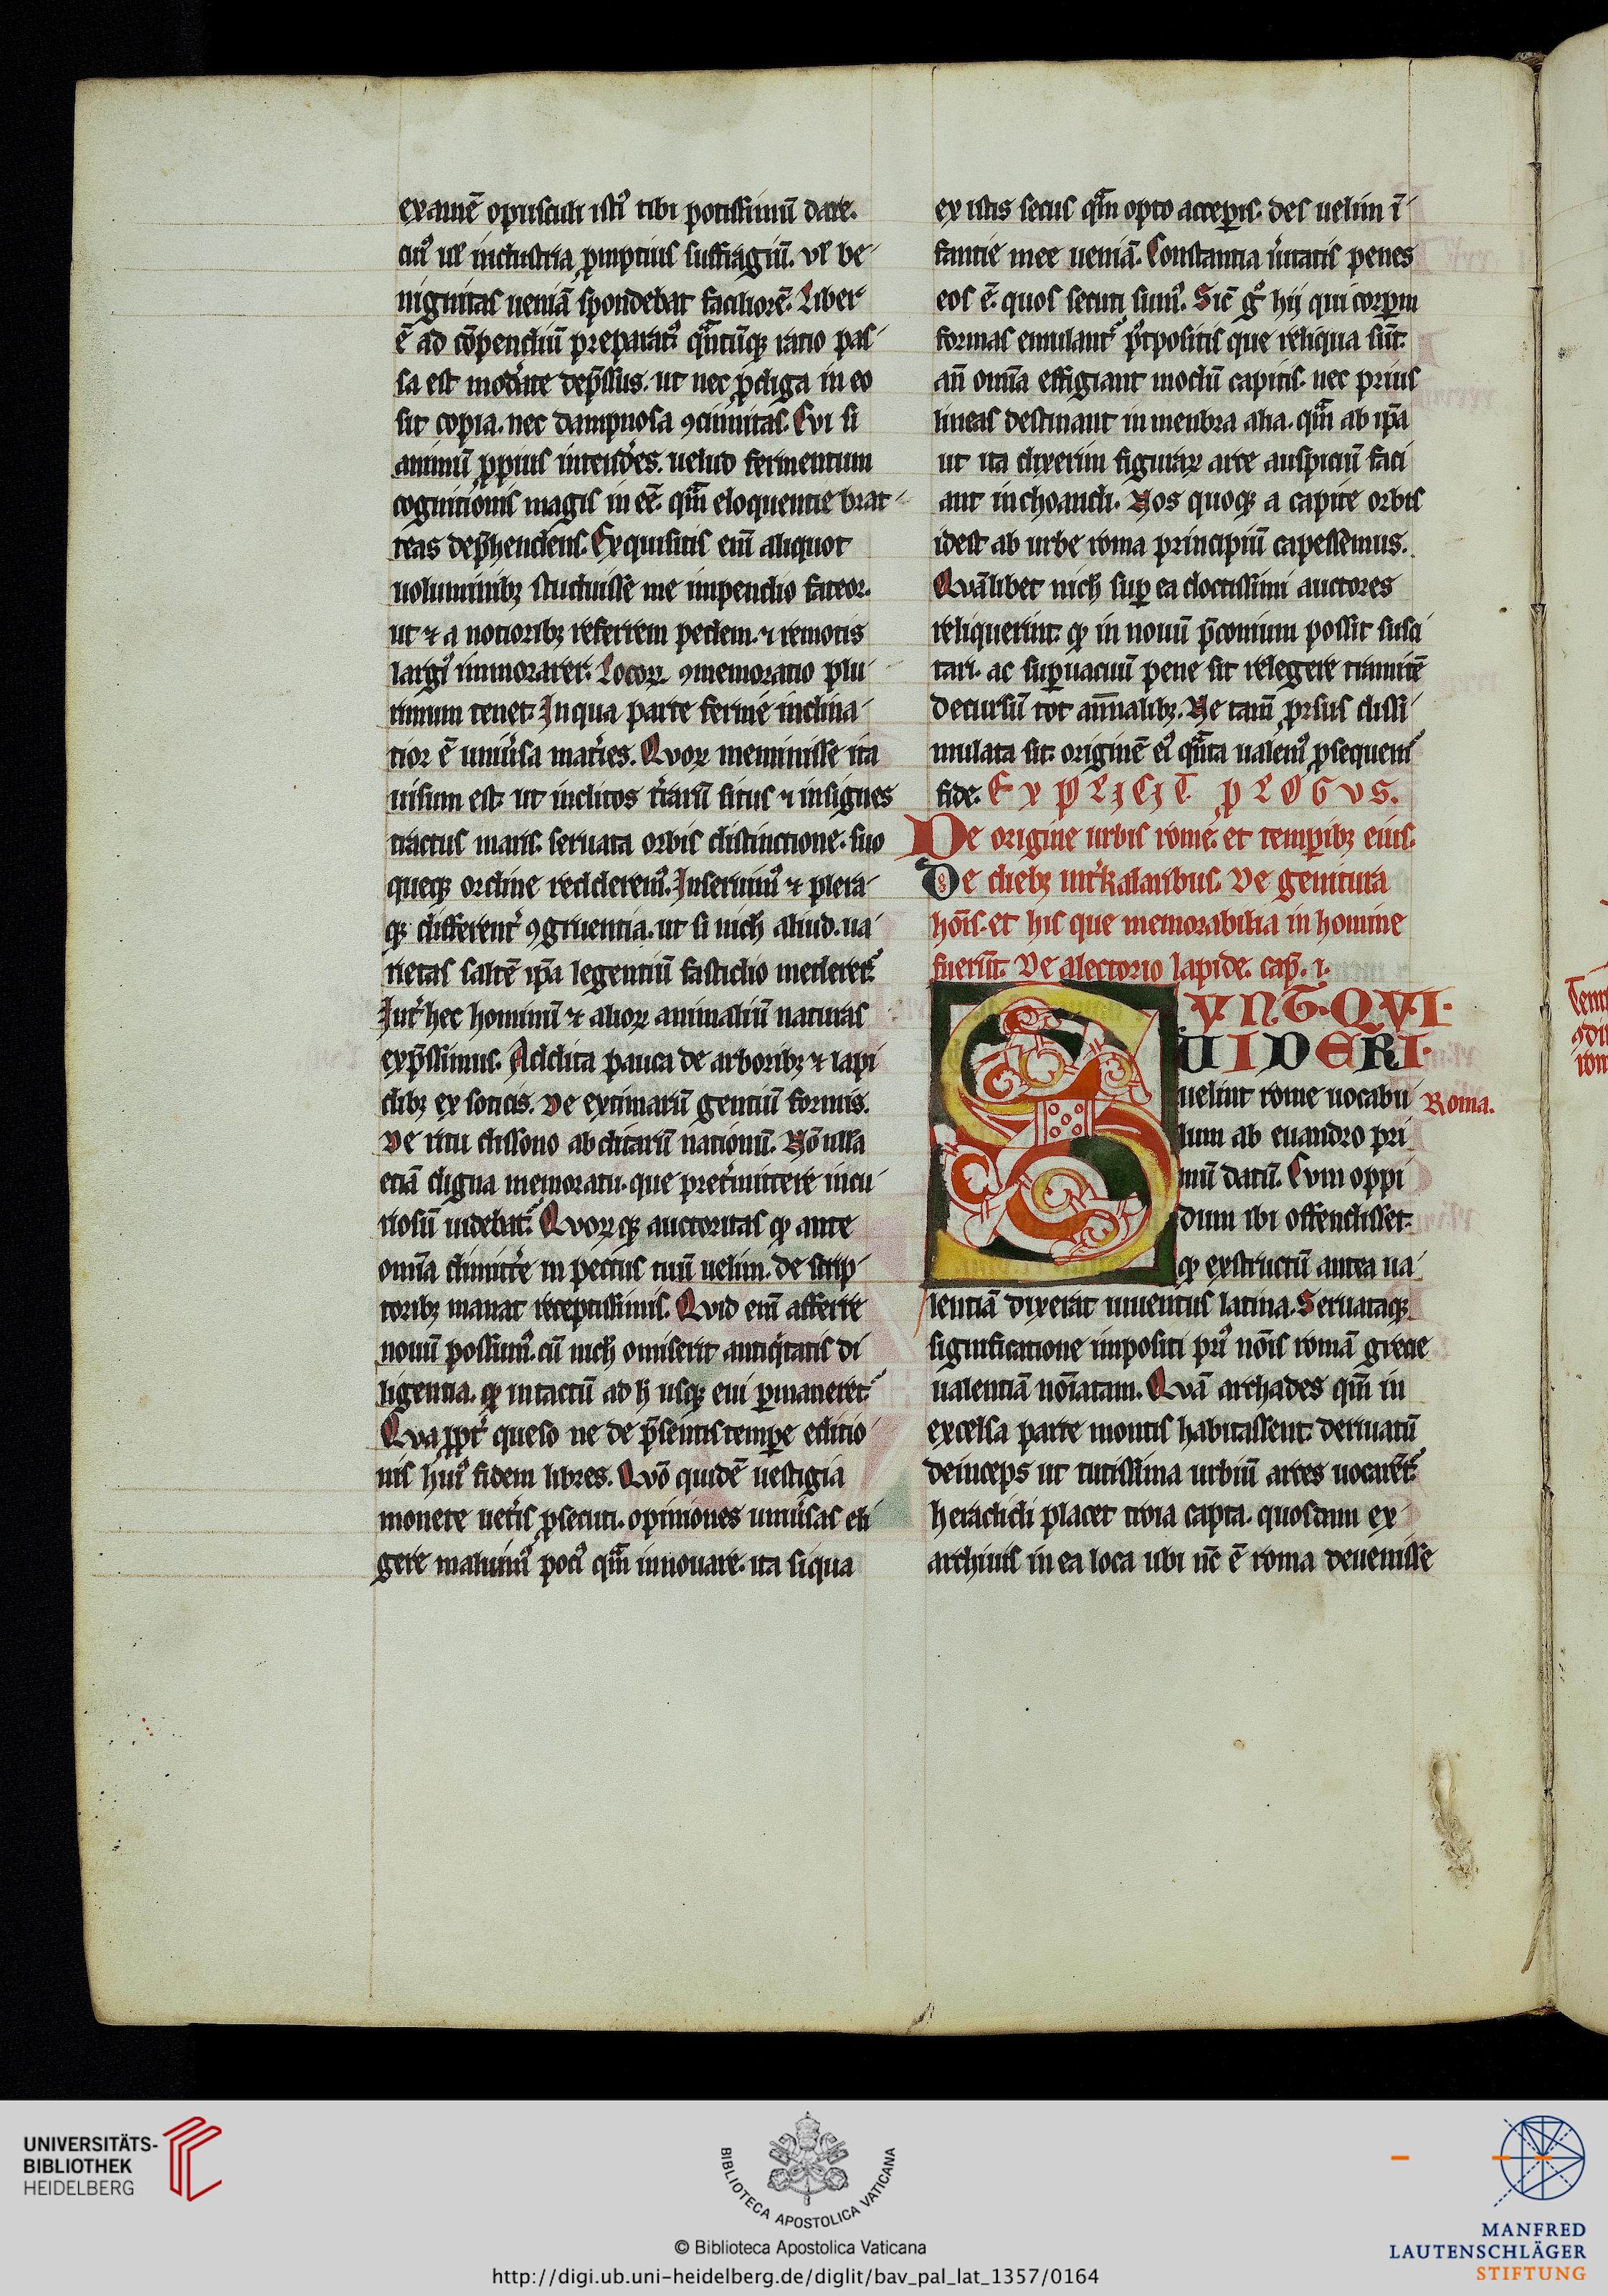 examē opusculi istiꝰ tibi potissimū dare.
cuiꝰ ul̕ industria ꝓmptius suffragiū. vl̕ be-
nignitas ueniā spondebat faciliorē. Liber
ē ad cōpendiū preparatꝰ. qͣntūqꝫ ratio pas-
sa est mod̕ate dep̄ssus. ut nec ꝓdiga in eo
sit copia. nec dampnosa ꝯcinnitas. Cvi si
animū ꝓpius intend̕es. uelud fermentum
cognitionis magis in eē. qͣm eloquentie brat-
teas dep̄hendens. Exquisitis eni̅ aliquot
uoluminibꝫ studuisse me impendio fateor.
ut ⁊ a notioribꝫ referrem pedem. ⁊ remotis
largiꝰ immorarer. Locoꝝ ꝯmemoratio plu-
rimum tenet. In qua parte ferme inclina-
tior ē uniu̕sa mat̕ies. Qvoꝝ meminisse ita
uisum est. ut inclitos t̕raru̅ situs ⁊ insignes
tractus maris. seruata orbis distinctione. suo
queqꝫ ordine redderemꝰ. Inseruimꝰ ⁊ plera-
qꝫ different̕ ꝯgruentia. ut si nich̕ aliud. ua-
rietas saltē ip̄a legentiū fastidio mederet᷑.
Int̕ hec hominū ⁊ alioꝝ animaliū naturas
exp̄ssimus. Addita pauca de arboribꝫ ⁊ lapi
dibꝫ exsoticis. De extimarū gentiū formis.
De ritu dissono abditarū nationū. Nōulla
etiā digna memoratu. que pret̕mittere incu-
riosū uidebat᷑. Qvoꝝqꝫ auctoritas qꝫ ante
omīa dimitt̕e in pectus tuū uelim. de scrip-
toribꝫ manat receptissimis. Qvid eni̅ afferre
nouū possumꝰ. cū nich̕ omiserit antiqͥtatis di
ligentia. qꝫ intactū ad h̕ usqꝫ eui ꝑmaneret.
Qva ꝓpt̕ queso ne de p̄sentis tempe editio-
nis huiꝰ fidem libres. Qvō quidē uestigia
monete uet̕is ꝑsecuti. opiniones uniu̕sas eli
gere maluimꝰ pociꝰ qͣm innouare. ita siqua
ex istis secus qͣm opto acceꝑis. des uelim ī-
fantie mee ueniā. Constantia u̕itatis penes
eos ē. quos secuti sumꝰ. Sic̄ gͦ hij qui corꝑu̅
formas emulant᷑ p̕tpositis que reliqua su̅t.
an̄ omīa effigiant modū capitis. nec prius
lineas destinant in menbra alia. qͣm ab ip̄a
ut ita dixerim figuraꝝ arce auspiciū faci
ant inchoandi. Nos quoqꝫ a capite orbis
idest ab urbe roma principiū capessemus.
Qvālibet nich̕ suꝑ ea doctissimi auctores
reliquerint. qꝫ in nouū p̄conium possit susci
tari. ac suꝑuacuū pene sit relegere tramitē
decursū tot an̄nalibꝫ. Ne tam̄ ꝓrsus dissi-
mulata sit. originē eiꝰ qͣnta ualemꝰ ꝓsequem᷑
fide. EXPLICIT PLOGVS.
De origine urbis rome. et temꝑibꝫ eius.
De diebꝫ int̕kalaribus. De genitura
hoīs. et his que memorabilia in homine
fueru̅t. De alectorio lapide. cap̄. i.
SVNT. QVI.
UIDERI.
uelint rome uocabu Roma.
lum ab euandro pri
mū datū. Cvm oppi
dum ibi offendisset.
qꝫ exstructū antea ua-
lentiā dixerat iuuentus latina. Seruataqꝫ
significatione impositi priꝰ nōis romā grece
ualentiā nōiatam. Qvā archades qm̄ in
excelsa parte montis habitassent. deriuatū
deinceps ut tutissima urbiū arces uocare̅t᷑.
heraclidi placet troia capta. quosdam ex
archiuis in ea loca ubi nc̄ ē roma deuenisse
UNIVERSITÄTS-
BIBLIOTHEK
HEIDELBERG
BIBLIOTECA APOSTOLICA VATICANA
© Biblioteca Apostolica Vaticana
http://digi.ub.uni-heidelberg.de/diglit/bav_pal_lat_1357/0164
MANFRED
LAUTENSCHLÄGER
STIFTUNG